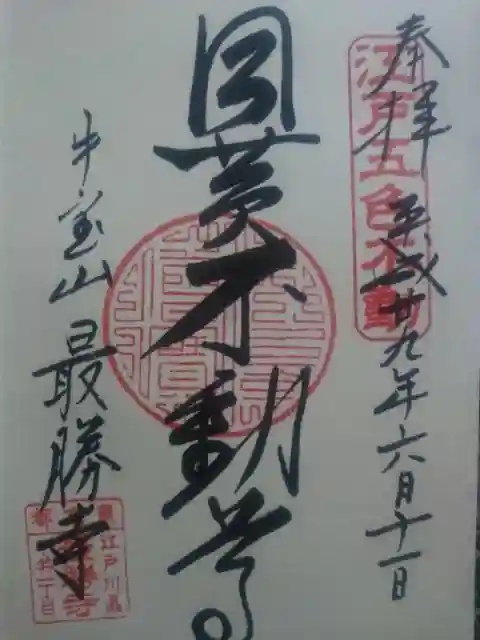 奉拝
江戸五色不動
平成廿九年六月十一日
目黄不動尊
牛宝山
最勝寺
江戸川區
最勝寺